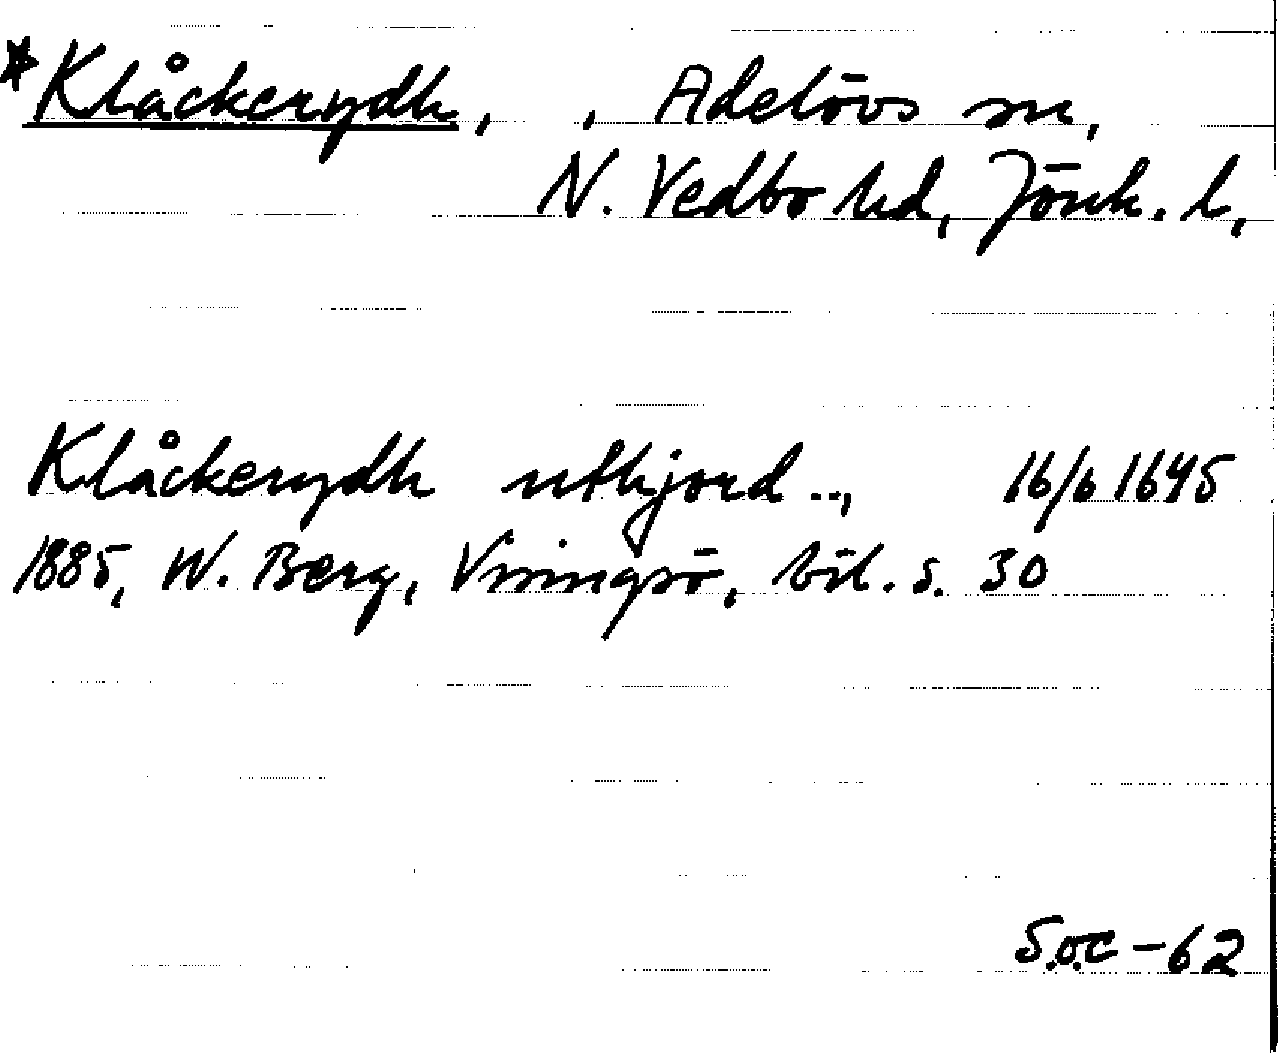 *Klåckerydh, , Adelövs sn,
N. Vedbo hd, Jönk. l,
Klåckerydh uthjord .., 16/6 1645
1885, W. Berg, Visingsö, bil. s. 30
S.o.C - 62